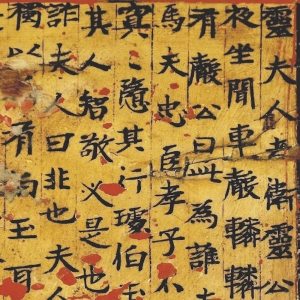 靈夫人者衛靈公
夜坐聞車聲轔轔
有聲公曰此為誰
馬夫忠臣孝子不
冥〻隨其行璩伯玉
其人智敬必是也
詐夫人曰非也夫人
獨以有伯玉耳